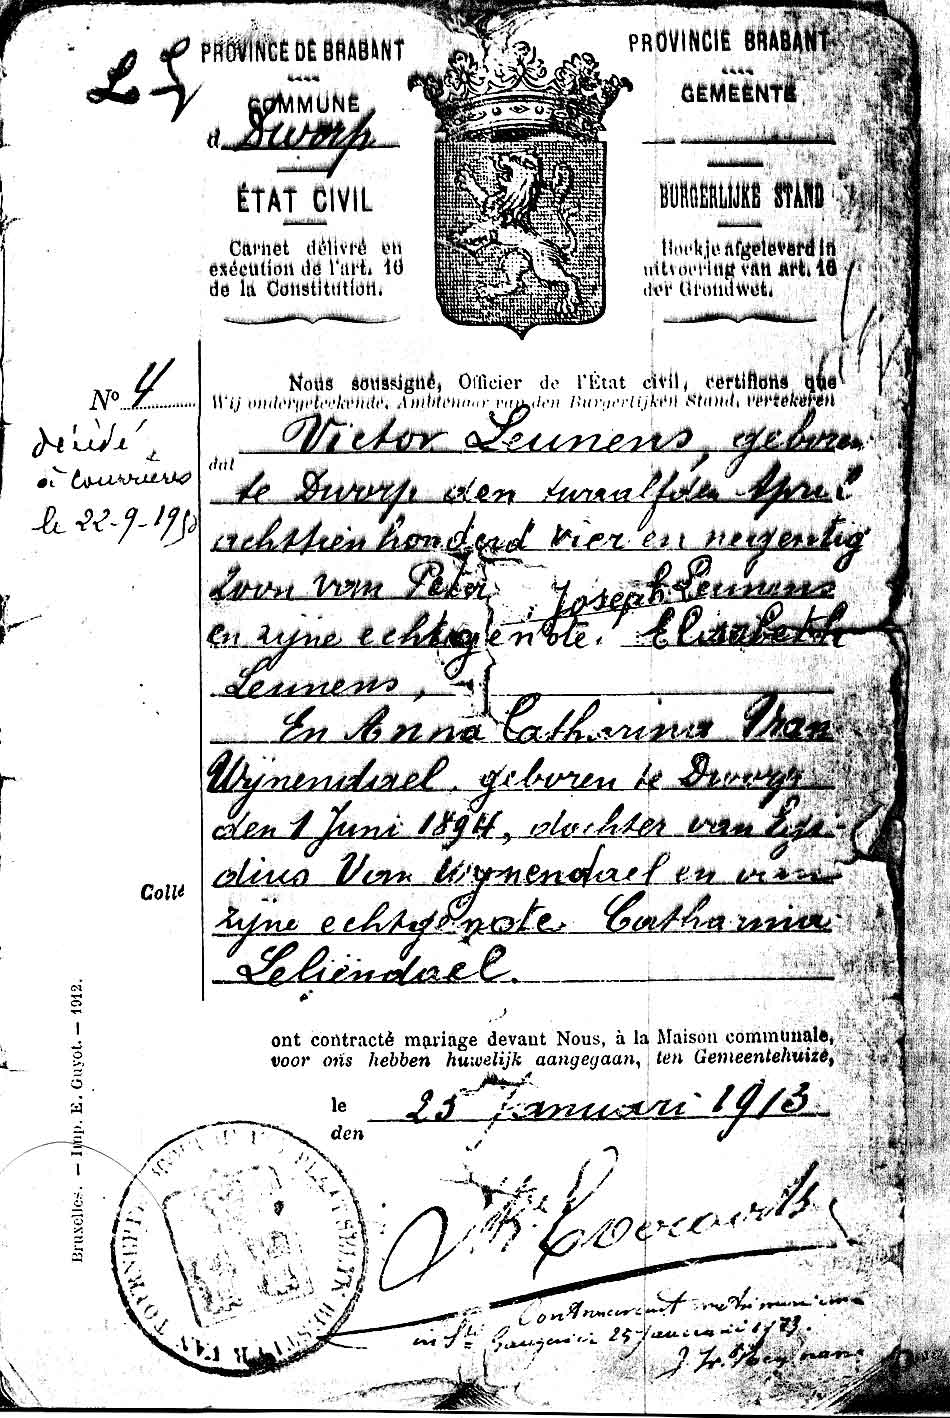 L L
PROVINCE DE BRABANT
COMMUNE
d Dworp
ÉTAT CIVIL
Carnet délivré en
exécution de l'art. 16
de la Constitution.
PROVINCIE BRABANT
GEMEENTE
BURGERLIJKE STAND
Boekje afgeleverd in
uitvoering van art. 16
der Grondwet.
Nº 4
décédé
à Courrières
le 22-9-1950
Nous soussigné, Officier de l'État civil, certifions que
Wij ondergeteekende, Ambtenaar van den Burgerlijken Stand, verzekeren
dat Victor Leunens, geboren
te Dworp den twaalfden April
achttien honderd vier en negentig
zoon van Peter Joseph Leunens
en zijne echtgenote Elisabeth
Leunens,
En Anna Catharina Van
Wijnendael, geboren te Dworp
den 1 Juni 1894, dochter van Egi-
dius Van Wijnendael en van
zijne echtgenote Catharina
Leliëndael.
Collé
ont contracté mariage devant Nous, à la Maison communale,
voor ons hebben huwelijk aangegaan, ten Gemeentehuize,
le
den 25 Januari 1913
Bruxelles. — Imp. E. Guyot. — 1912.
25 Januarii 1913.